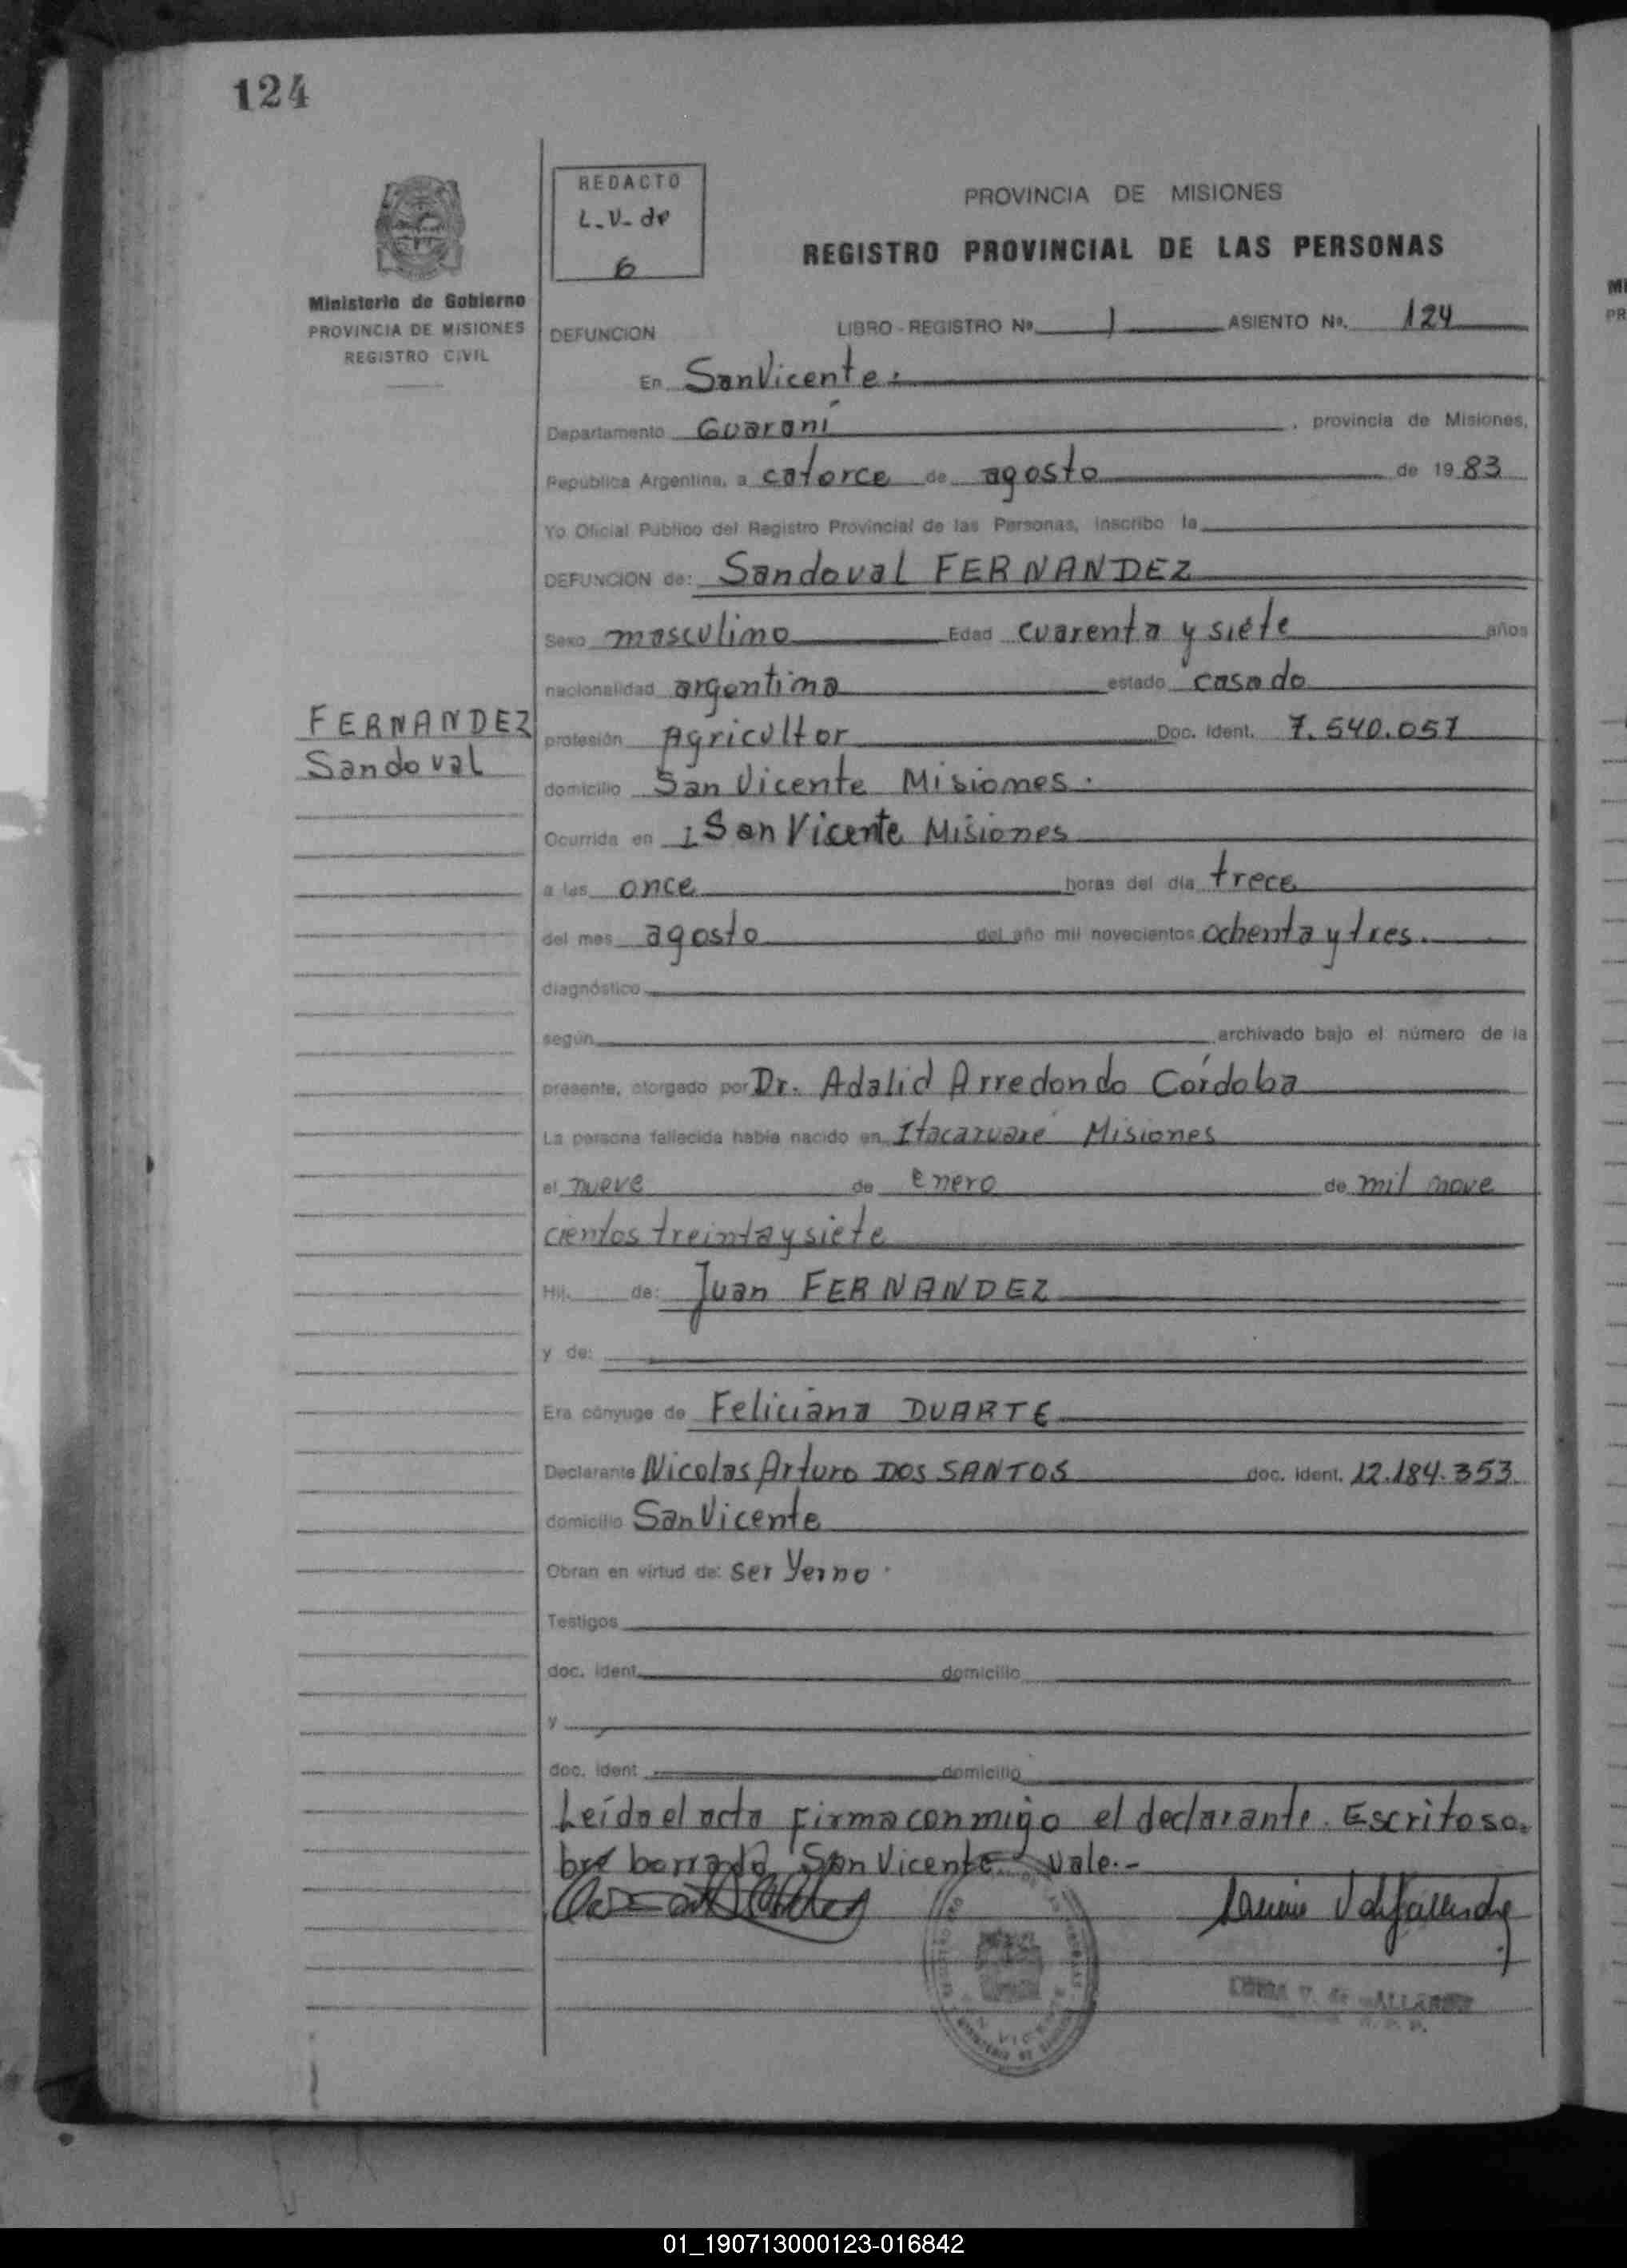 124
REDACTO
L.V. de
G
PROVINCIA DE MISIONES
REGISTRO PROVINCIAL DE LAS PERSONAS
Ministerio de Gobierno
PROVINCIA DE MISIONES
REGISTRO CIVIL
DEFUNCION LIBRO - REGISTRO Nº. 1 ASIENTO Nº. 124
En San Vicente.
Departamento Guaraní, provincia de Misiones,
República Argentina, a catorce de agosto de 1983
Yo Oficial Público del Registro Provincial de las Personas, inscribo la
DEFUNCION de: Sandoval FERNANDEZ
Sexo masculino Edad cuarenta y siete años
nacionalidad argentina estado casado
FERNANDEZ
Sandoval
profesión Agricultor Doc. Ident. 7.540.057
domicilio San Vicente Misiones.
Ocurrida en San Vicente Misiones
a las once horas del día trece
del mes agosto del año mil novecientos ochenta y tres.
diagnóstico
según archivado bajo el número de la
presente, otorgado por Dr. Adalid Arredondo Córdoba
La persona fallecida había nacido en Itacaruaré Misiones
el nueve de enero de mil nove
cientos treinta y siete
Hij. de: Juan FERNANDEZ
y de:
Era cónyuge de Feliciana DUARTE
Declarante Nicolas Arturo DOS SANTOS doc. ident. 12.184.353
domicilio San Vicente
Obran en virtud de: ser Yerno.
Testigos
doc. ident. domicilio
y
doc. ident domicilio
Leída el acta firma conmigo el declarante. Escrito so-
bre borrado San Vicente Vale.-
01_190713000123-016842